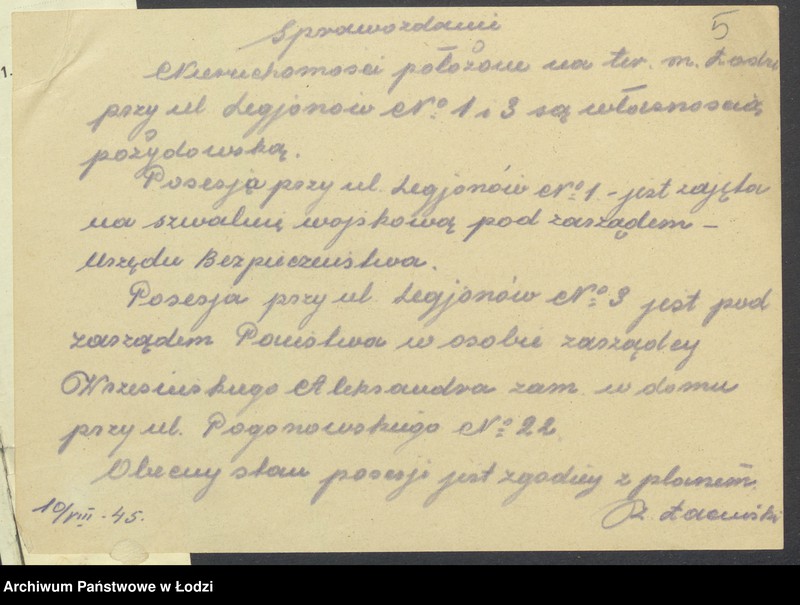 Sprawozdanie
5
Nieruchomości położone na ter. m. Łodzi
przy ul. Legjonów No 1 i 3 są własnością
pożydowską.
Posesja przy ul. Legjonów No 1 - jest zajęta
na szwalnię wojskową pod zarządem -
Urzędu Bezpieczeństwa.
Posesja przy ul. Legjonów No 3 jest pod
zarządem Państwa w osobie zarządcy
Wrzesińskiego Aleksandra zam. w domu
przy ul. Pogonowskiego No 22.
Obecny stan posesji jest zgodny z planem.
10/VIII - 45.
1.
Archiwum Państwowe w Łodzi